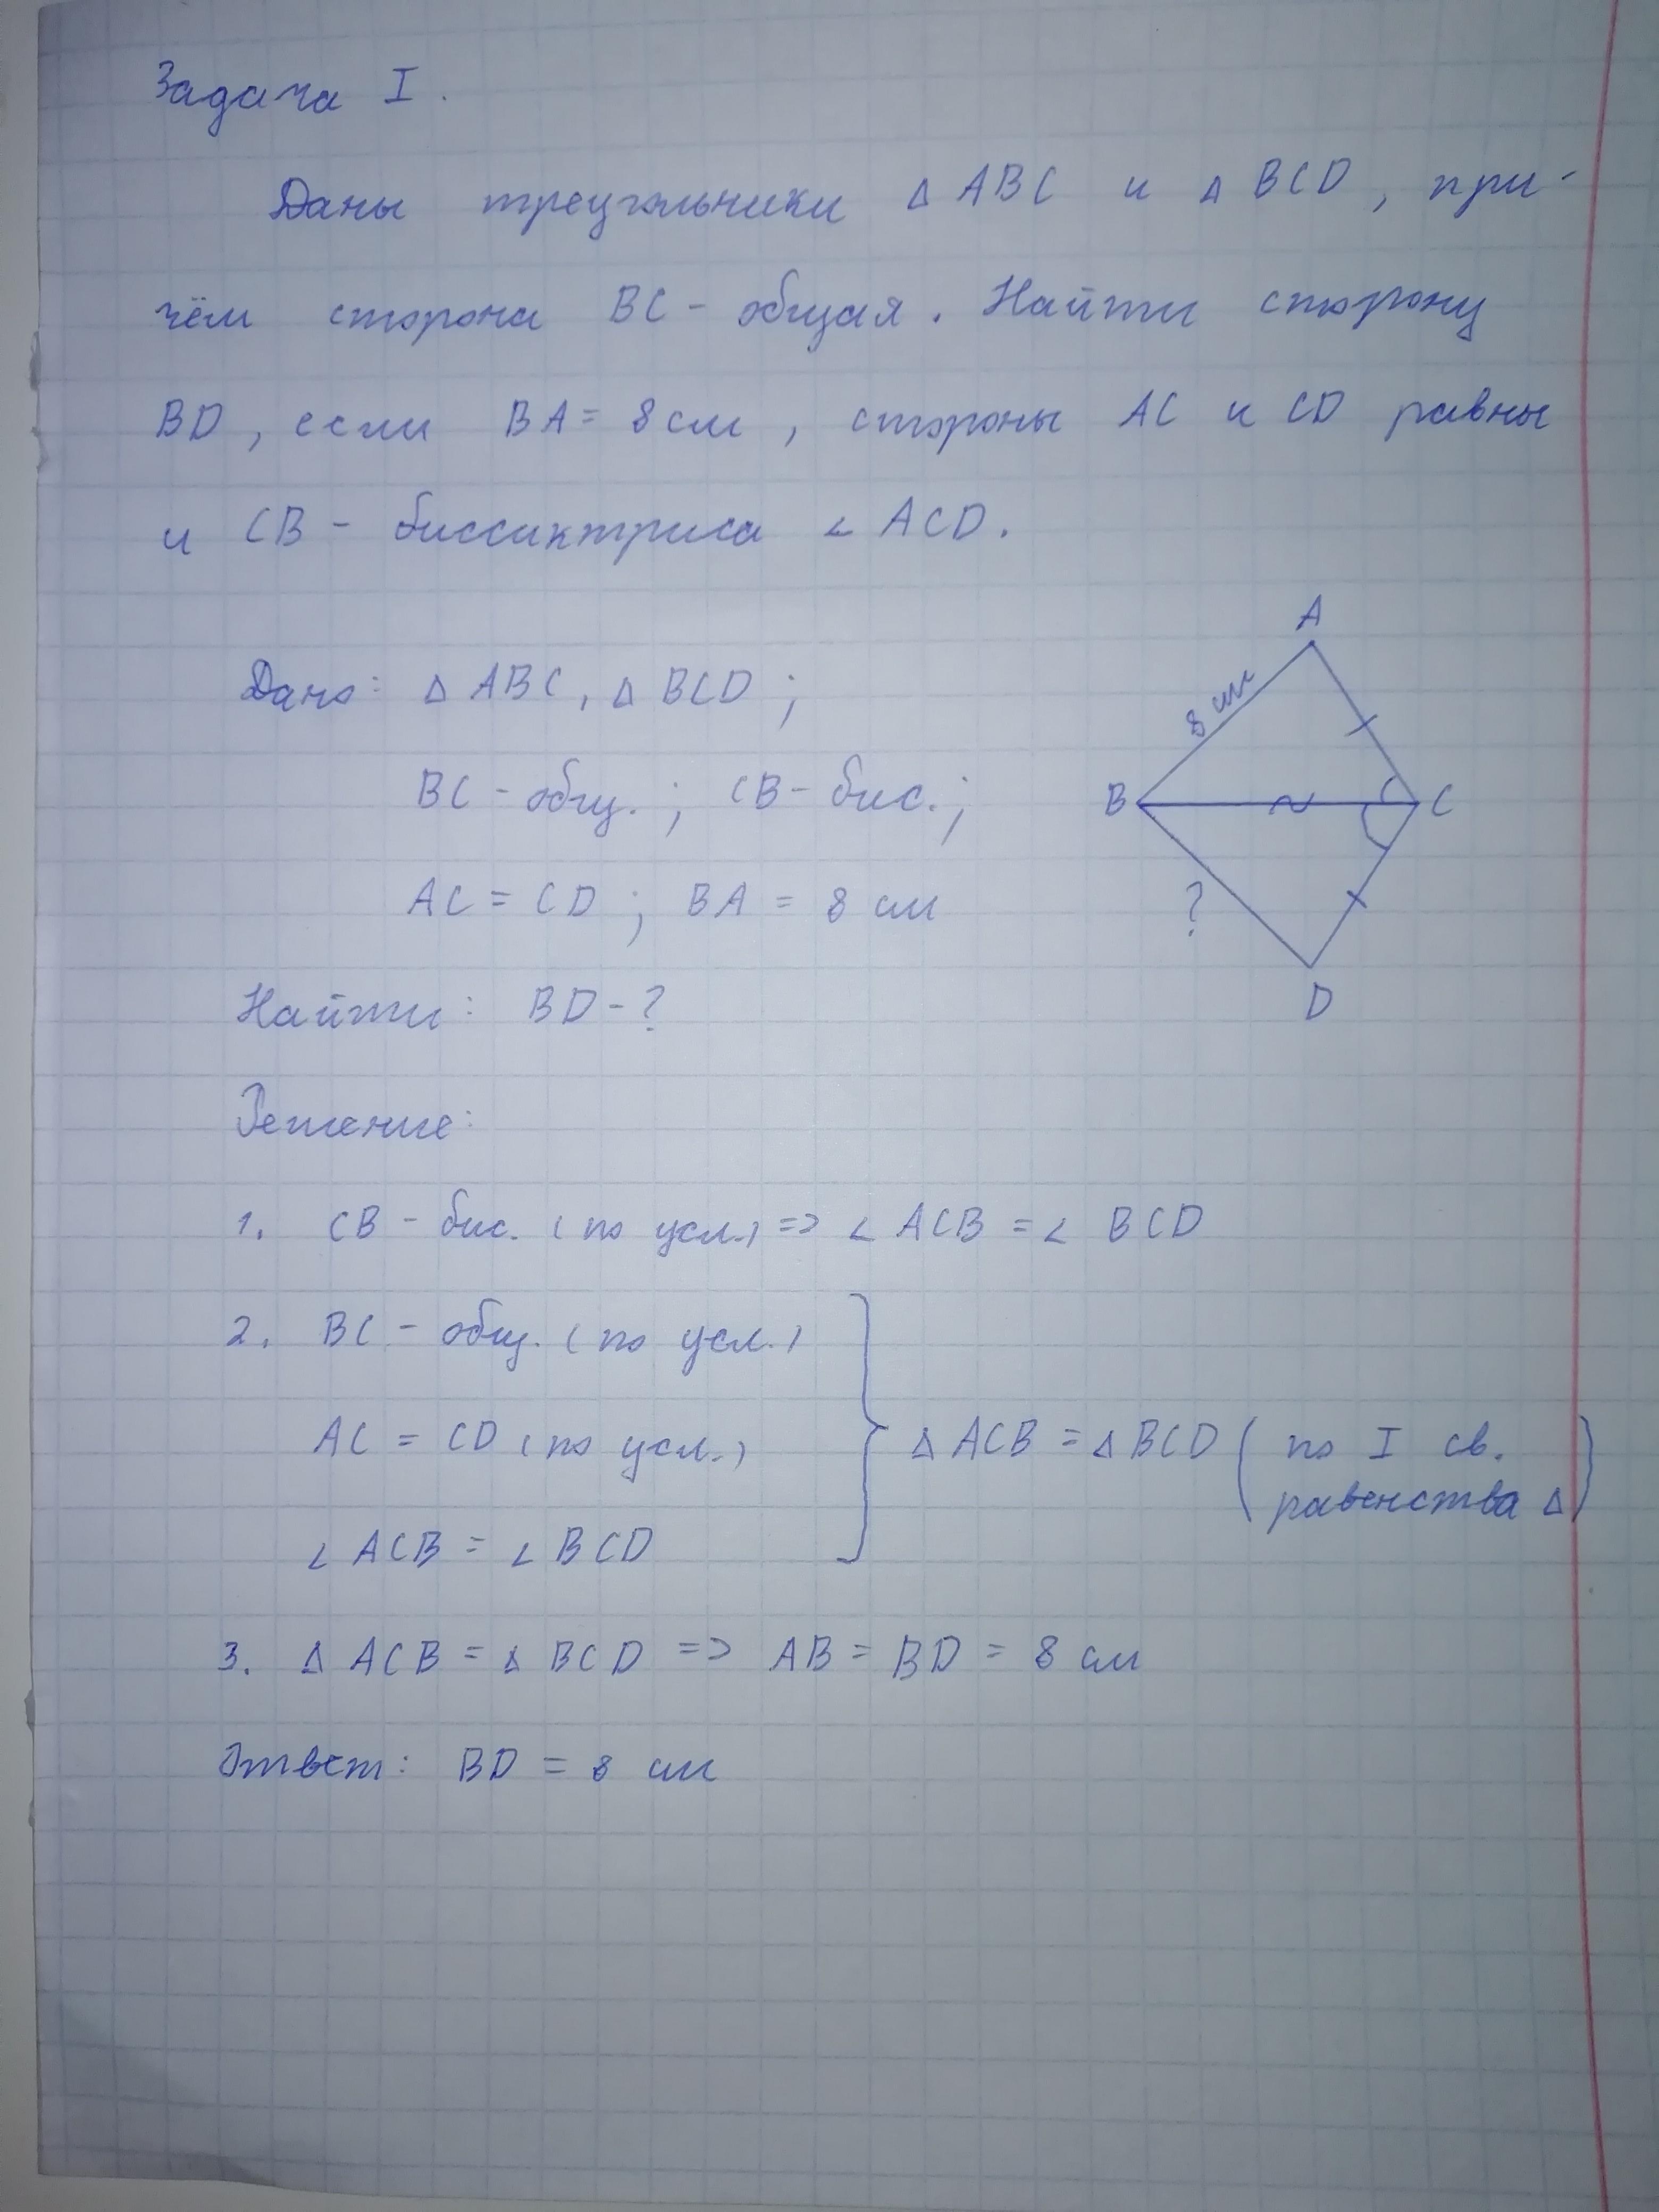 Задача I.
Даны треугольники △ ABC и △ BCD, при-
чём сторона BC - общая. Найти сторону
BD, если BA = 8 см, стороны AC и CD равны
и CB - биссиктриса ∠ ACD.
Дано: △ ABC, △ BCD;
BC - общ.; CB - бис.;
AC = CD; BA = 8 см
Найти: BD - ?
A
8 см
B
C
?
D
Решение:
1. CB - бис. (по усл.) => ∠ ACB = ∠ BCD
2. BC - общ. (по усл.)
AC = CD (по усл.)
∠ ACB = ∠ BCD
△ ACB = △ BCD (по I св.
равенства △)
3. △ ACB = △ BCD => AB = BD = 8 см
Ответ: BD = 8 см